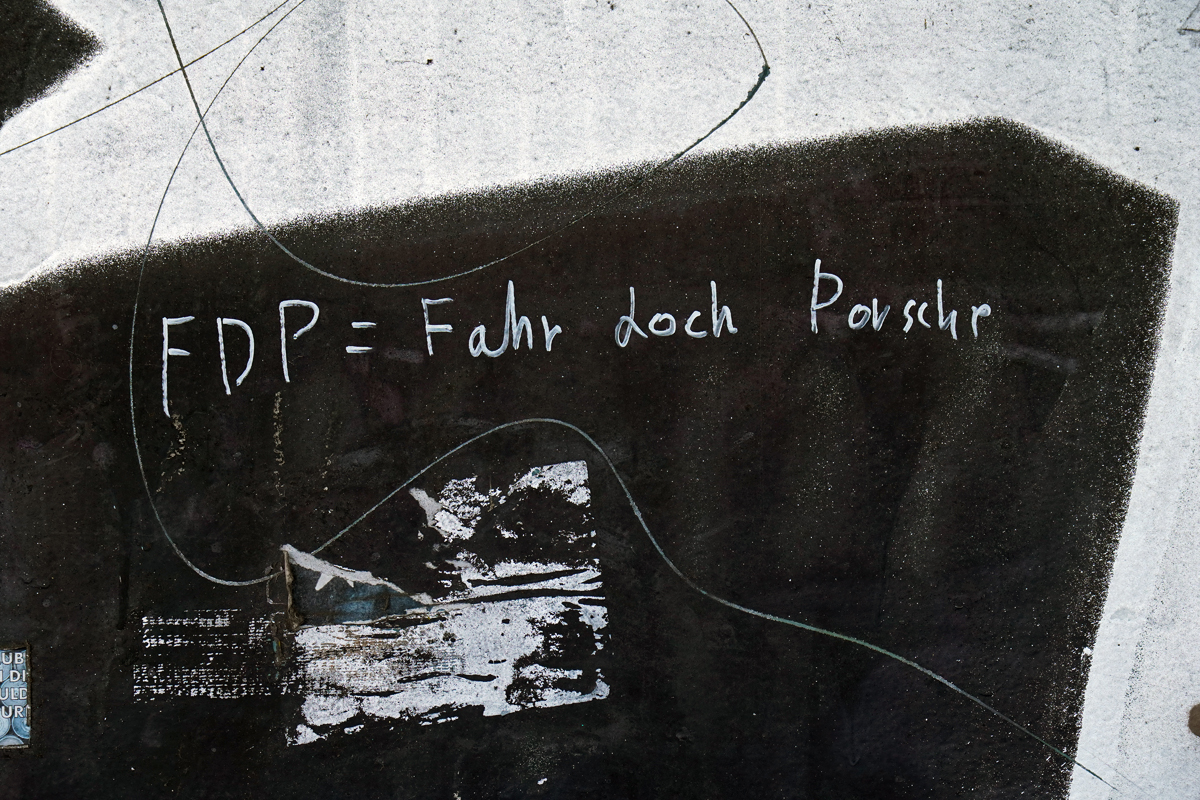 FDP = Fahr doch Porsche
UB
I DI
ULD
UR